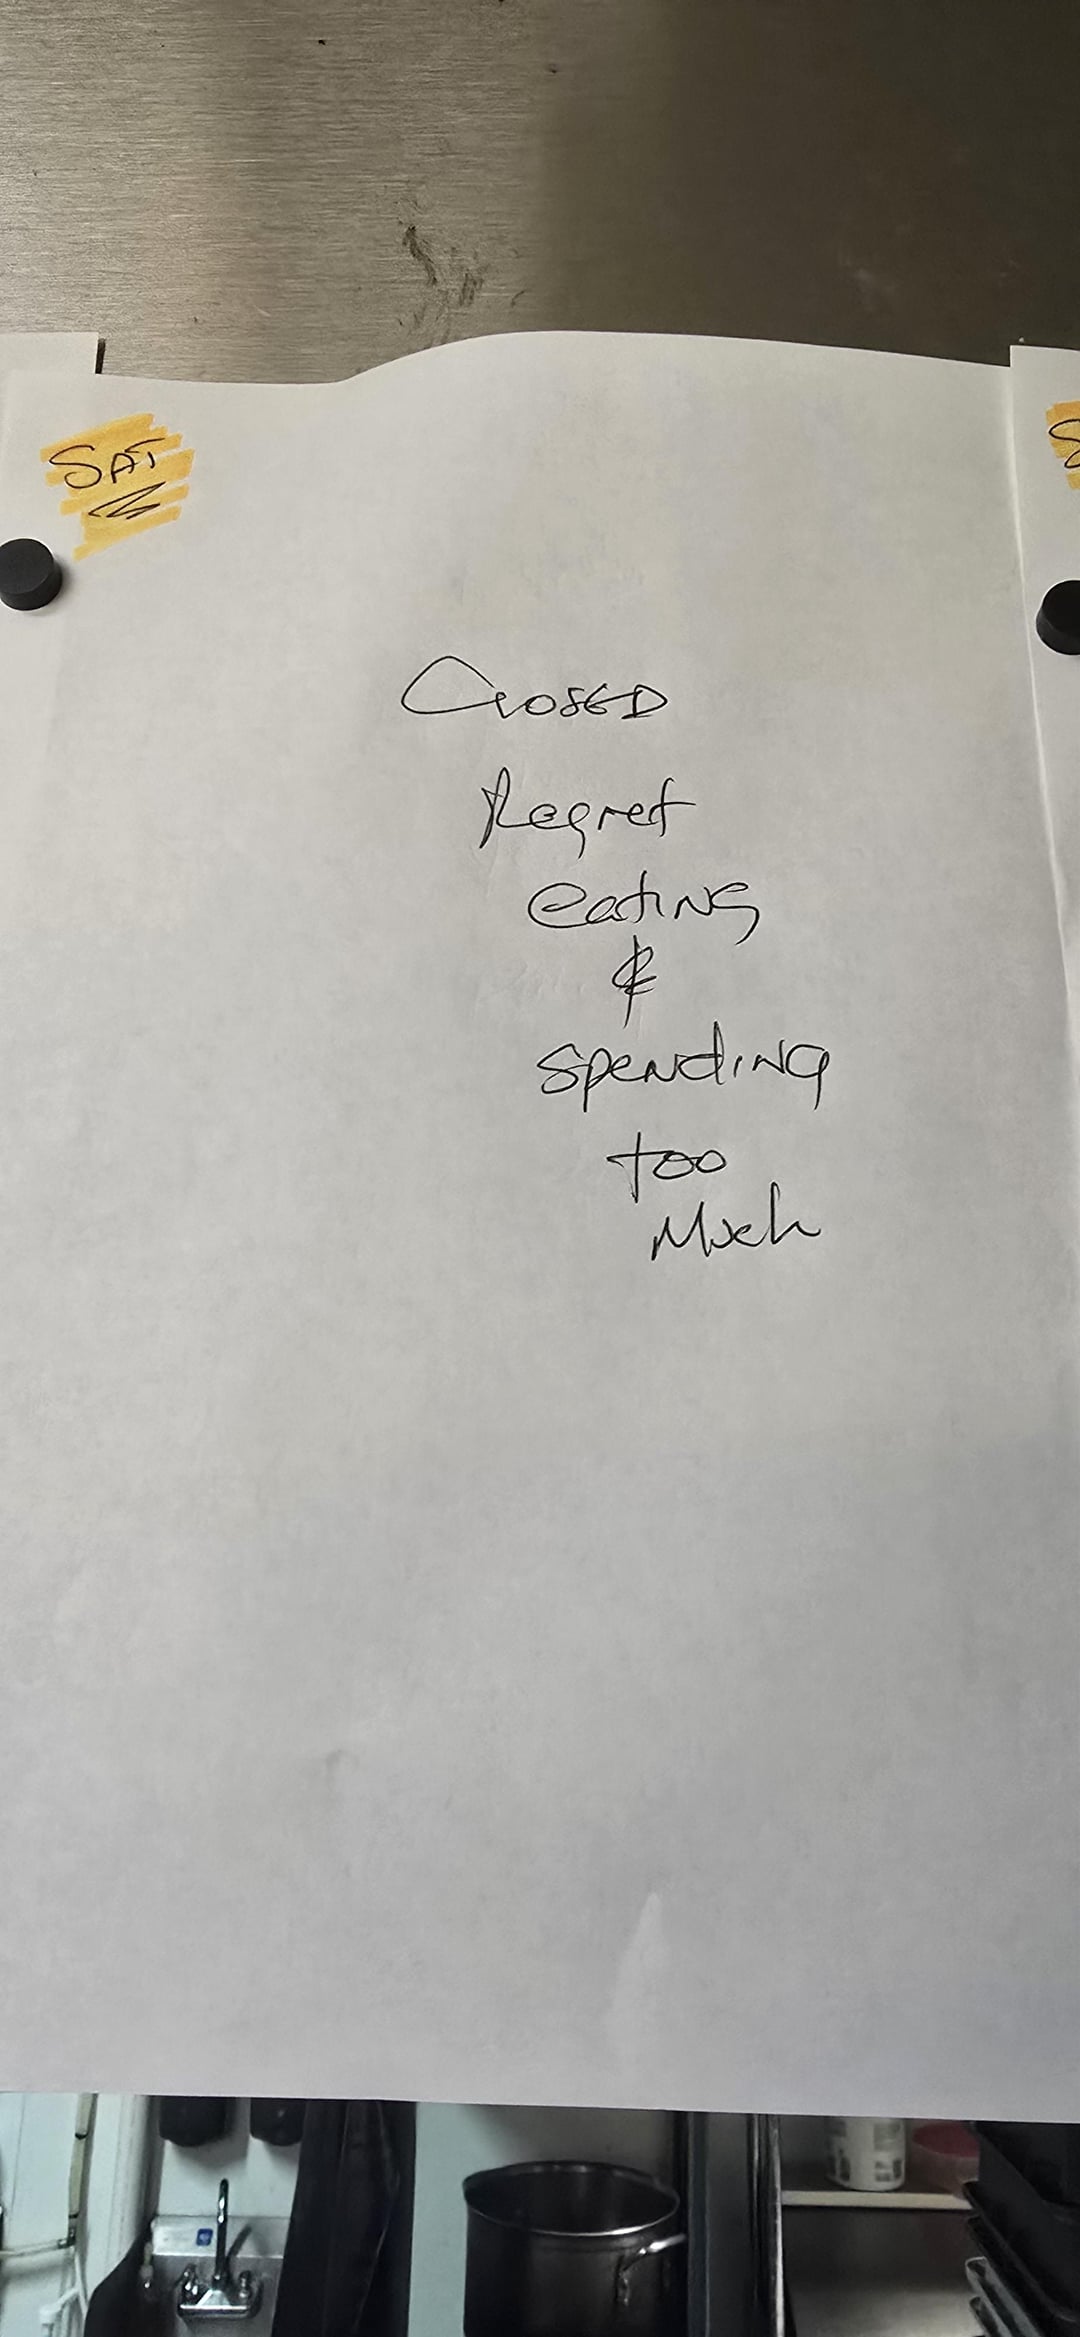 SAT
CLOSED
Regret
eating
&
spending
too
Much
S